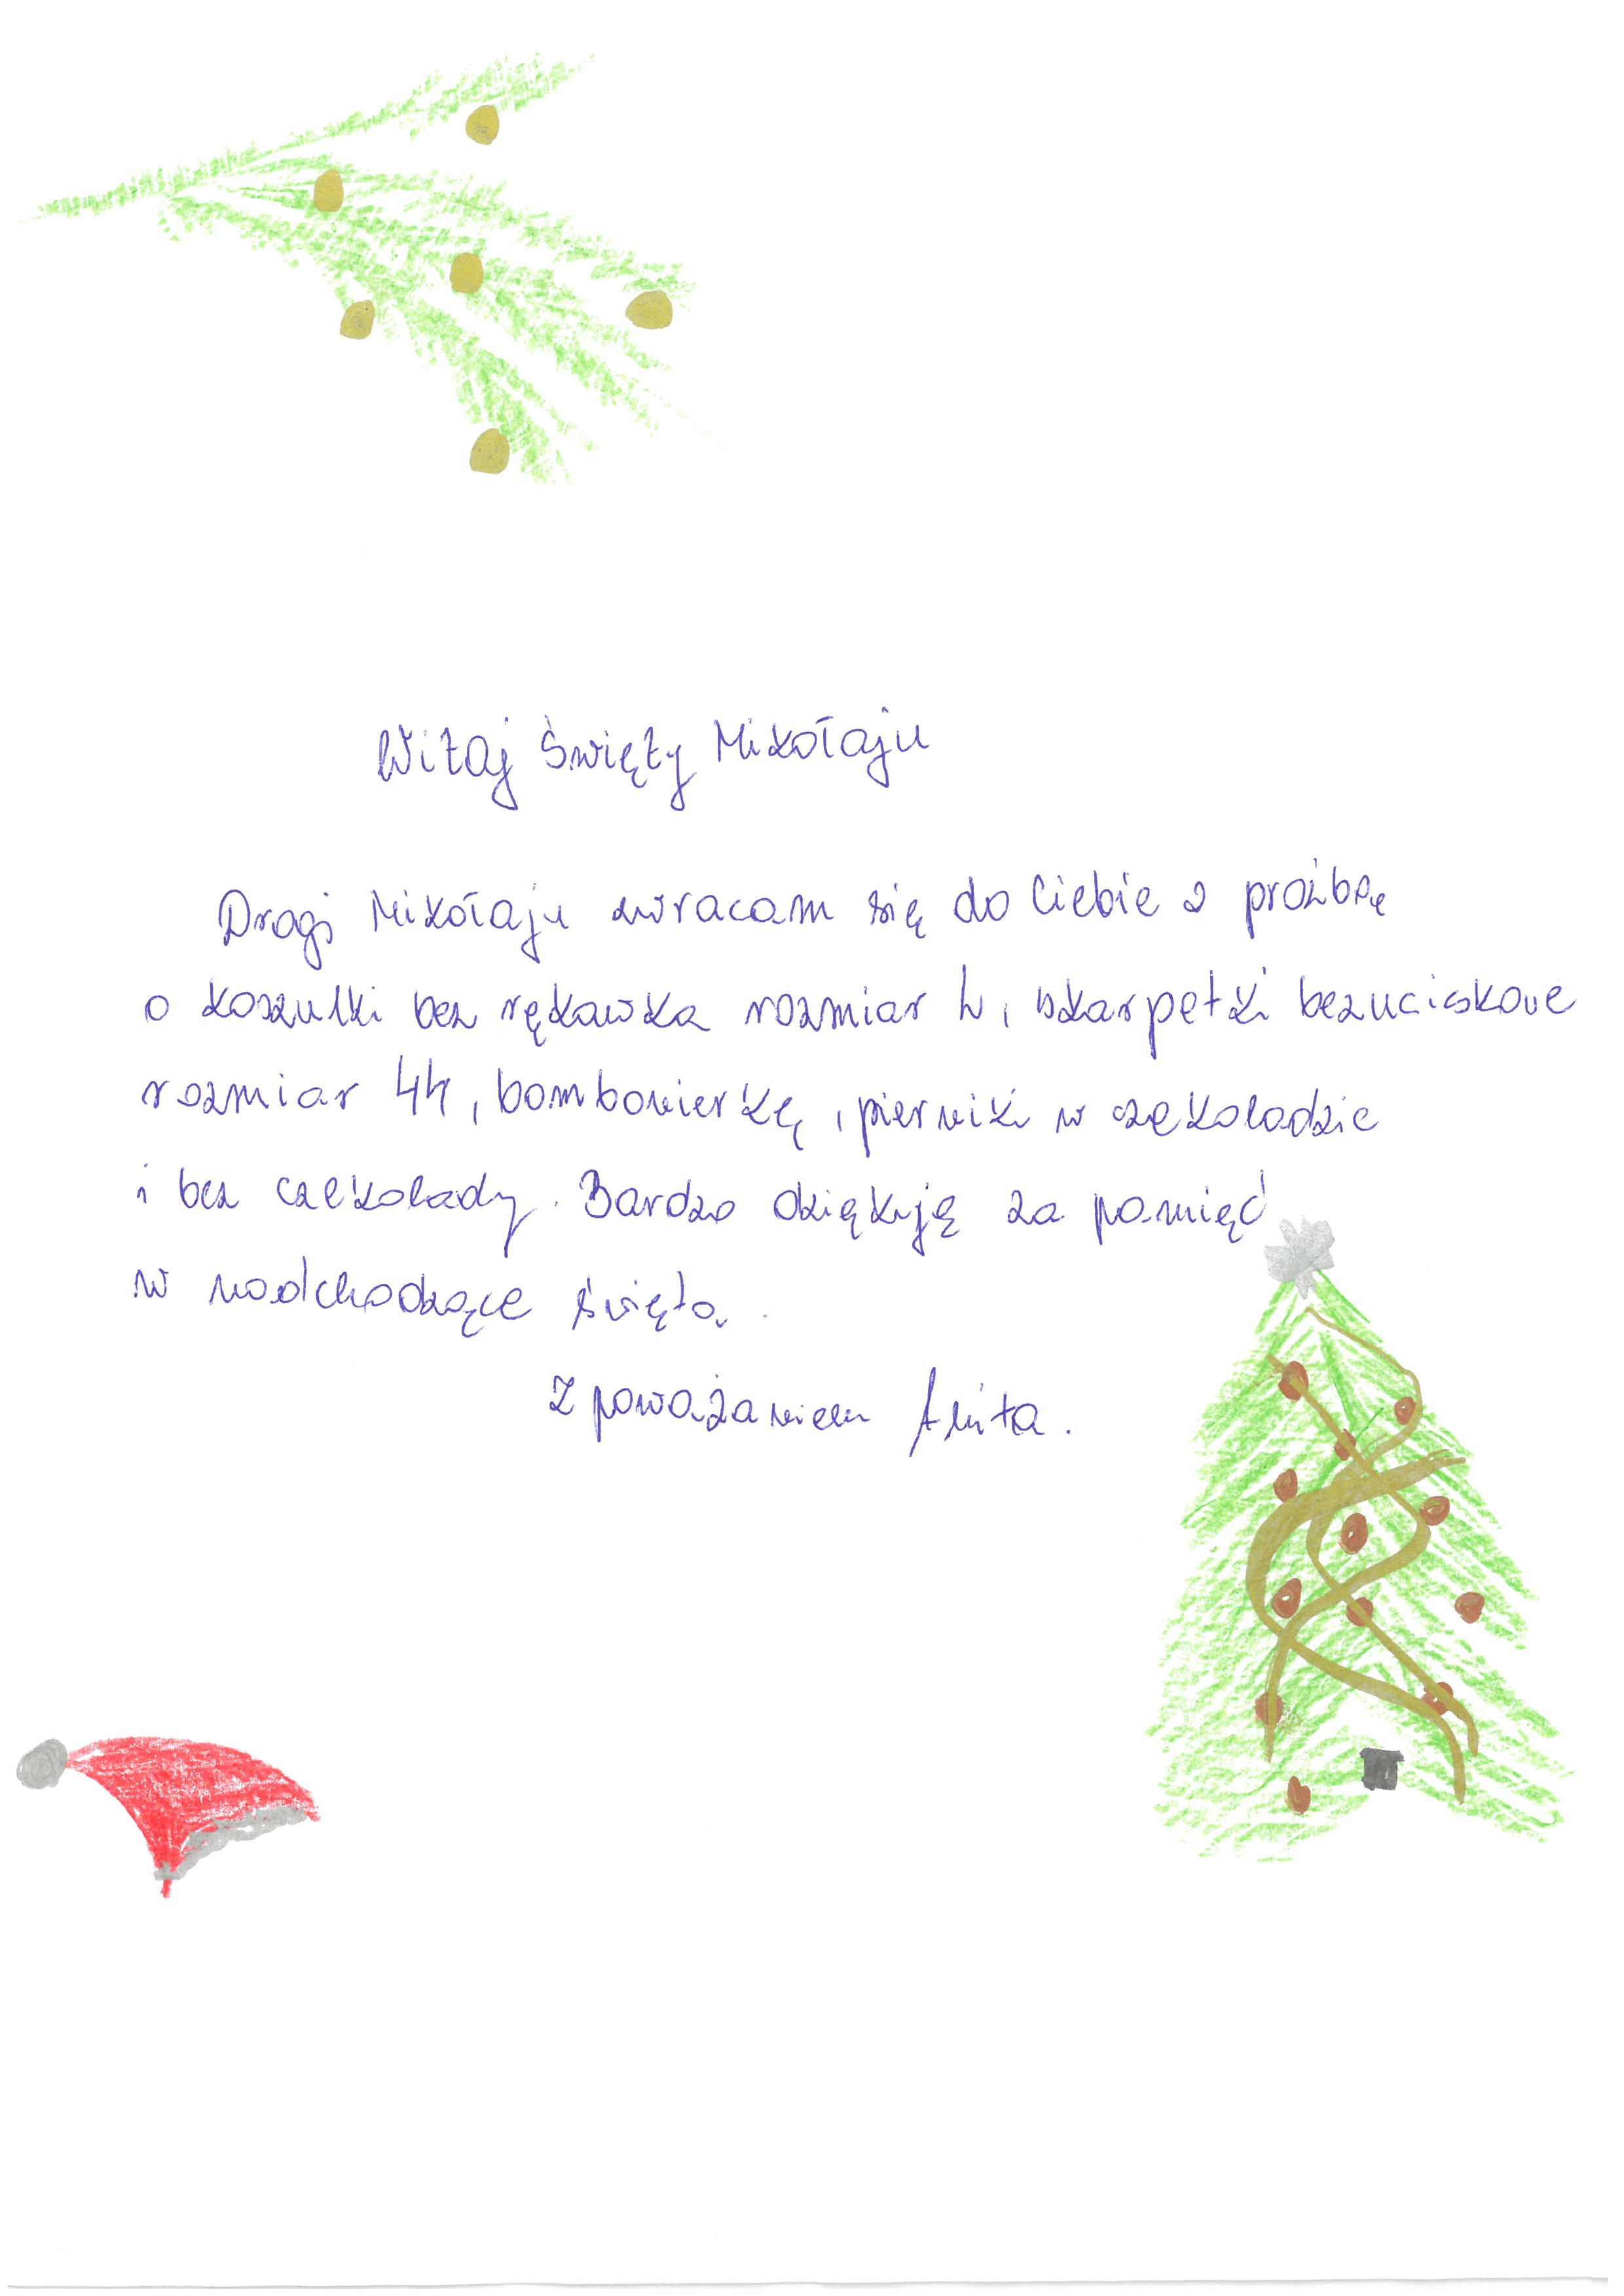 Witaj Święty Mikołaju
Drogi Mikołaju zwracam się do Ciebie z prożbą
o koszulki bez rękawka rozmiar L, skarpetki bezuciskowe
rozmiar 44, bombonierkę, pierniki w czekoladzie
i bez czekolady. Bardzo dziękuję za pamięć
w nadchodzące święta.
Z poważaniem Anita.